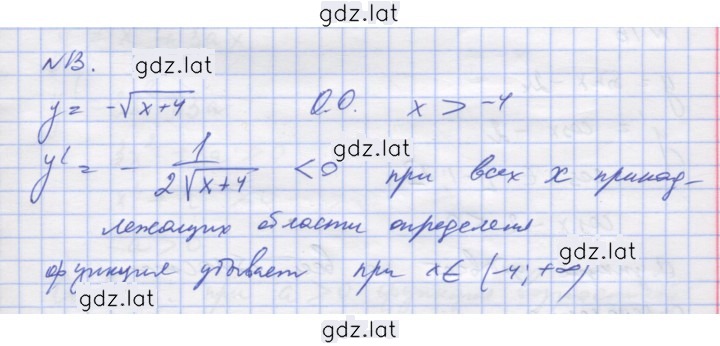 gdz.lat
N13.
gdz.lat
y = -√(x+4) О.О. x > -4
gdz.lat
y' = - 1/(2√(x+4)) < 0 при всех x принад-
лежащих области определения
gdz.lat
функция убывает при x ∈ (-4; +∞)
gdz.lat
gdz.lat